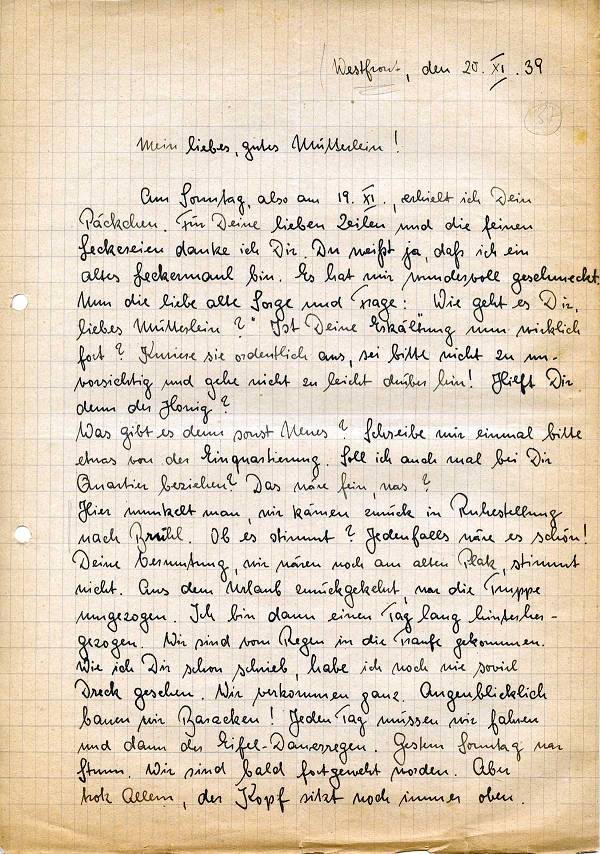 Westfront, den 20. XI. 39
37
Mein liebes, gutes Mütterlein!
Am Sonntag, also am 19. XI., erhielt ich Dein
Päckchen. Für Deine lieben Zeilen und die feinen
Leckereien danke ich Dir. Du weißt ja, daß ich ein
altes Leckermaul bin. Es hat mir wundervoll geschmeckt.
Nun die liebe alte Sorge und Frage: Wie geht es Dir,
liebes Mütterlein?" Ist Deine Erkältung nun wirklich
fort? Kuriere sie ordentlich aus, sei bitte nicht zu un-
vorsichtig und gehe nicht zu leicht drüber hin! Hilft Dir
denn der Honig?
Was gibt es denn sonst Neues? Schreibe mir einmal bitte
etwas von der Einquartierung. Soll ich auch mal bei Dir
Quartier beziehen? Das wäre fein, was?
Hier munkelt man, wir kämen zurück in Ruhestellung
nach Brühl. Ob es stimmt? Jedenfalls wäre es schön!
Deine Vermutung, wir wären noch am alten Platz, stimmt
nicht. Aus dem Urlaub zurückgekehrt, war die Truppe
umgezogen. Ich bin dann einen Tag lang hinterher-
gezogen. Wir sind vom Regen in die Traufe gekommen.
Wie ich Dir schon schrieb, habe ich noch nie soviel
Dreck gesehen. Wir verkommen ganz. Augenblicklich
bauen wir Baracken! Jeden Tag müssen wir fahren
und dann der Eifel-Dauerregen. Gestern Sonntag war
Sturm. Wir sind bald fortgeweht worden. Aber
trotz Allem, der Kopf sitzt noch immer oben.